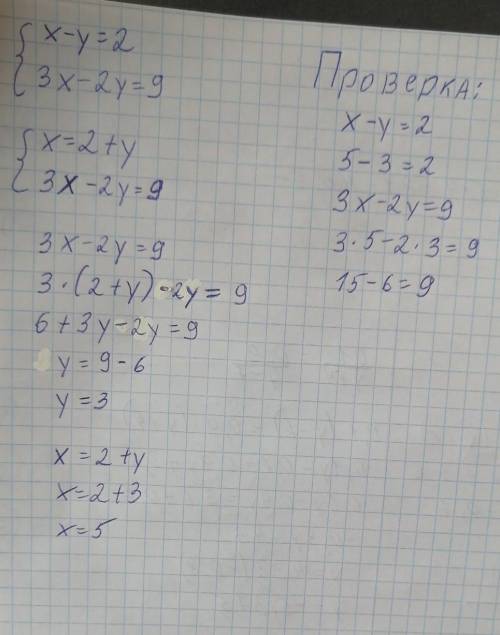 x-y=2
3x-2y=9
x=2+y
3x-2y=9
3x-2y=9
3·(2+y)-2y=9
6+3y-2y=9
y=9-6
y=3
x=2+y
x=2+3
x=5
Проверка:
x-y=2
5-3=2
3x-2y=9
3·5-2·3=9
15-6=9